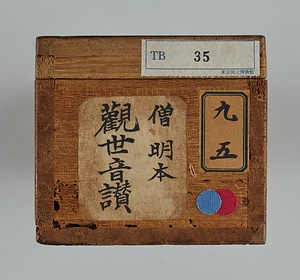 TB 35
東京国立博物館
九五
僧明本
觀世音讃